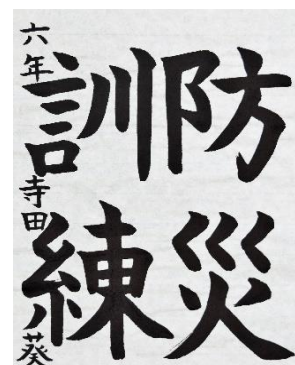 防災
訓練
六年 寺田 葵